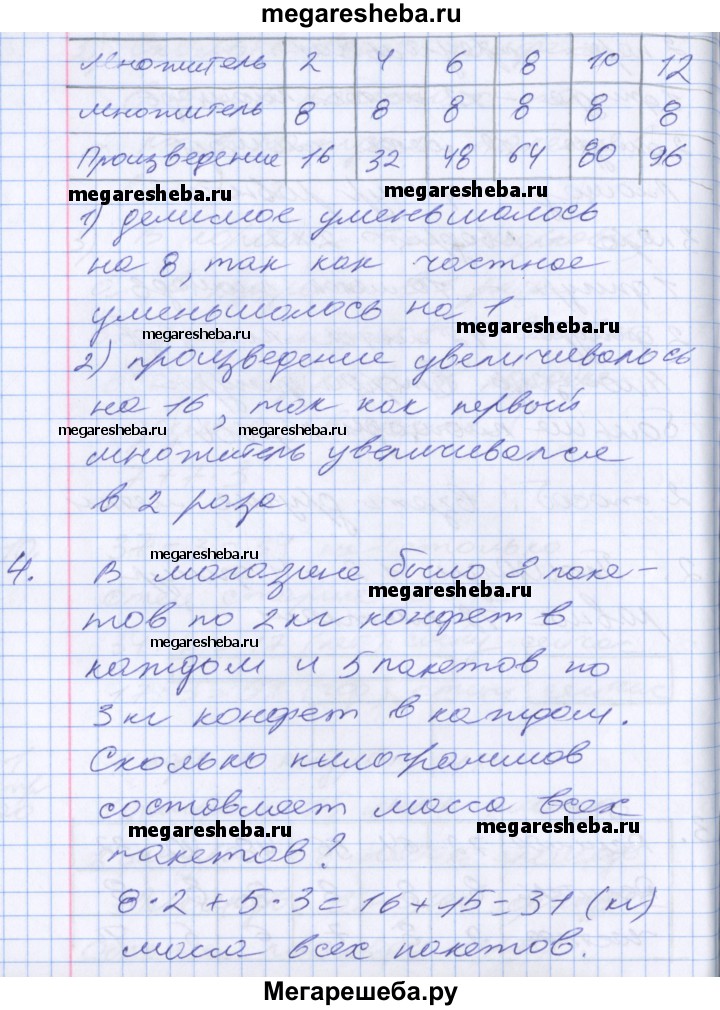 megaresheba.ru
Множитель 2 4 6 8 10 12
множитель 8 8 8 8 8 8
Произведение 16 32 48 64 80 96
megaresheba.ru megaresheba.ru
1) делимое уменьшалось
на 8, так как частное
уменьшалось на 1
megaresheba.ru megaresheba.ru
2) произведение увеличивалось
на 16, так как первый
megaresheba.ru megaresheba.ru
множитель увеличивался
в 2 раза
megaresheba.ru
4. В магазине было 8 паке-
megaresheba.ru
тов по 2 кг конфет в
megaresheba.ru
каждом и 5 пакетов по
3 кг конфет в каждом.
Сколько килограммов
составляет масса всех
megaresheba.ru megaresheba.ru
пакетов?
8·2+5·3=16+15=31 (кг)
масса всех пакетов.
Мегарешеба.ру